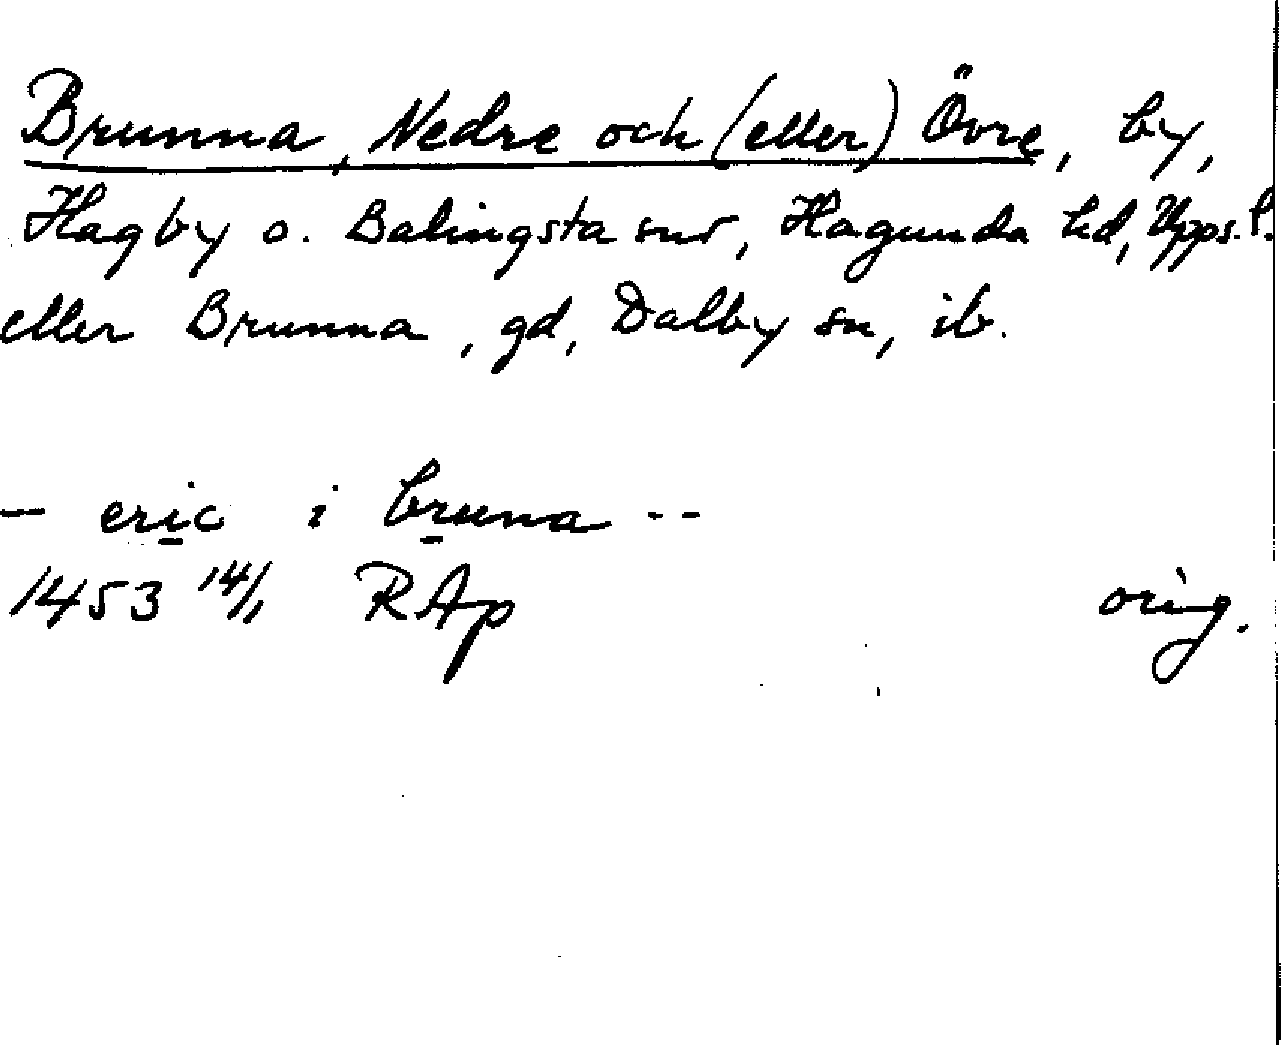 Brunna, Nedre och (eller) Övre, by,
Hagby o. Balingsta snr, Hagunda hd, Upps. l.
eller Brunna, gd, Dalby sn, ib.
- eric i bruna --
1453 14/1 RAp orig.